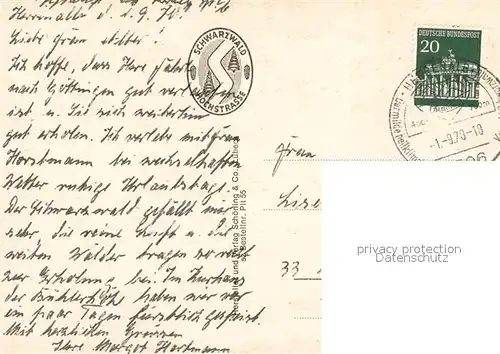 Herrenalb d. 1.9.70
Liebe Frau
Ich hoffe, dass Ihre Fahrt
nach Göttingen gut verlaufen
ist u. Sie sich weiterhin
gut erholen. Ich verlebe mit Frau
Horstmann bei wechselhaftem
Wetter ruhige Urlaubstage.
Der Schwarzwald gefällt mir
sehr, die reine Luft u. die
weiten Wälder tragen so viel
zur Erholung bei. Im Kurhaus
der Bühlerhöhe haben wir vor
ein paar Tagen fürstlich gespeist.
Mit herzlichen Grüssen
Ihre Margot Hartmann
SCHWARZWALD
HOCHSTRASSE
Verlag Schöning & Co.
Bestellnr.
Frau
33
DEUTSCHE BUNDESPOST
20
-1.-9.70-10
privacy protection
Datenschutz